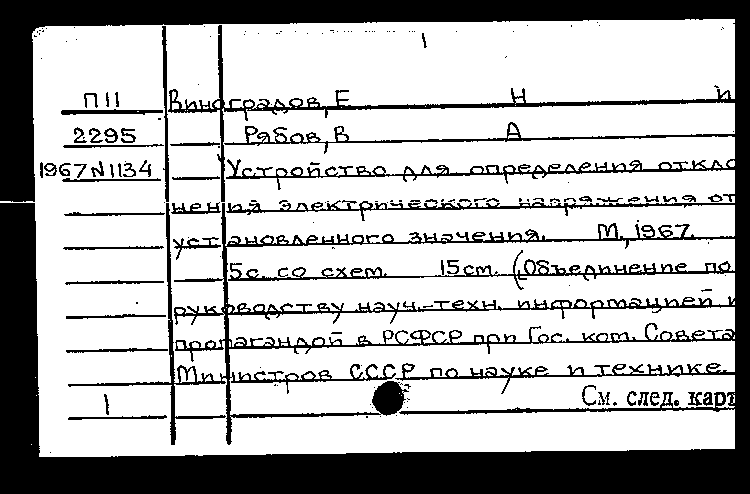 1
П11 Виноградов, Е Н и
2295 Рябов, В А
1967 N 1134 Устройство для определения откло
нения электрического напряжения от
установленного значения. М., 1967.
5с. со схем. 15см. (Объединение по
руководству науч.-техн. информацией и
пропагандой в РСФСР при Гос. ком. Совета
Министров СССР по науке и технике.
1 См. след. карт